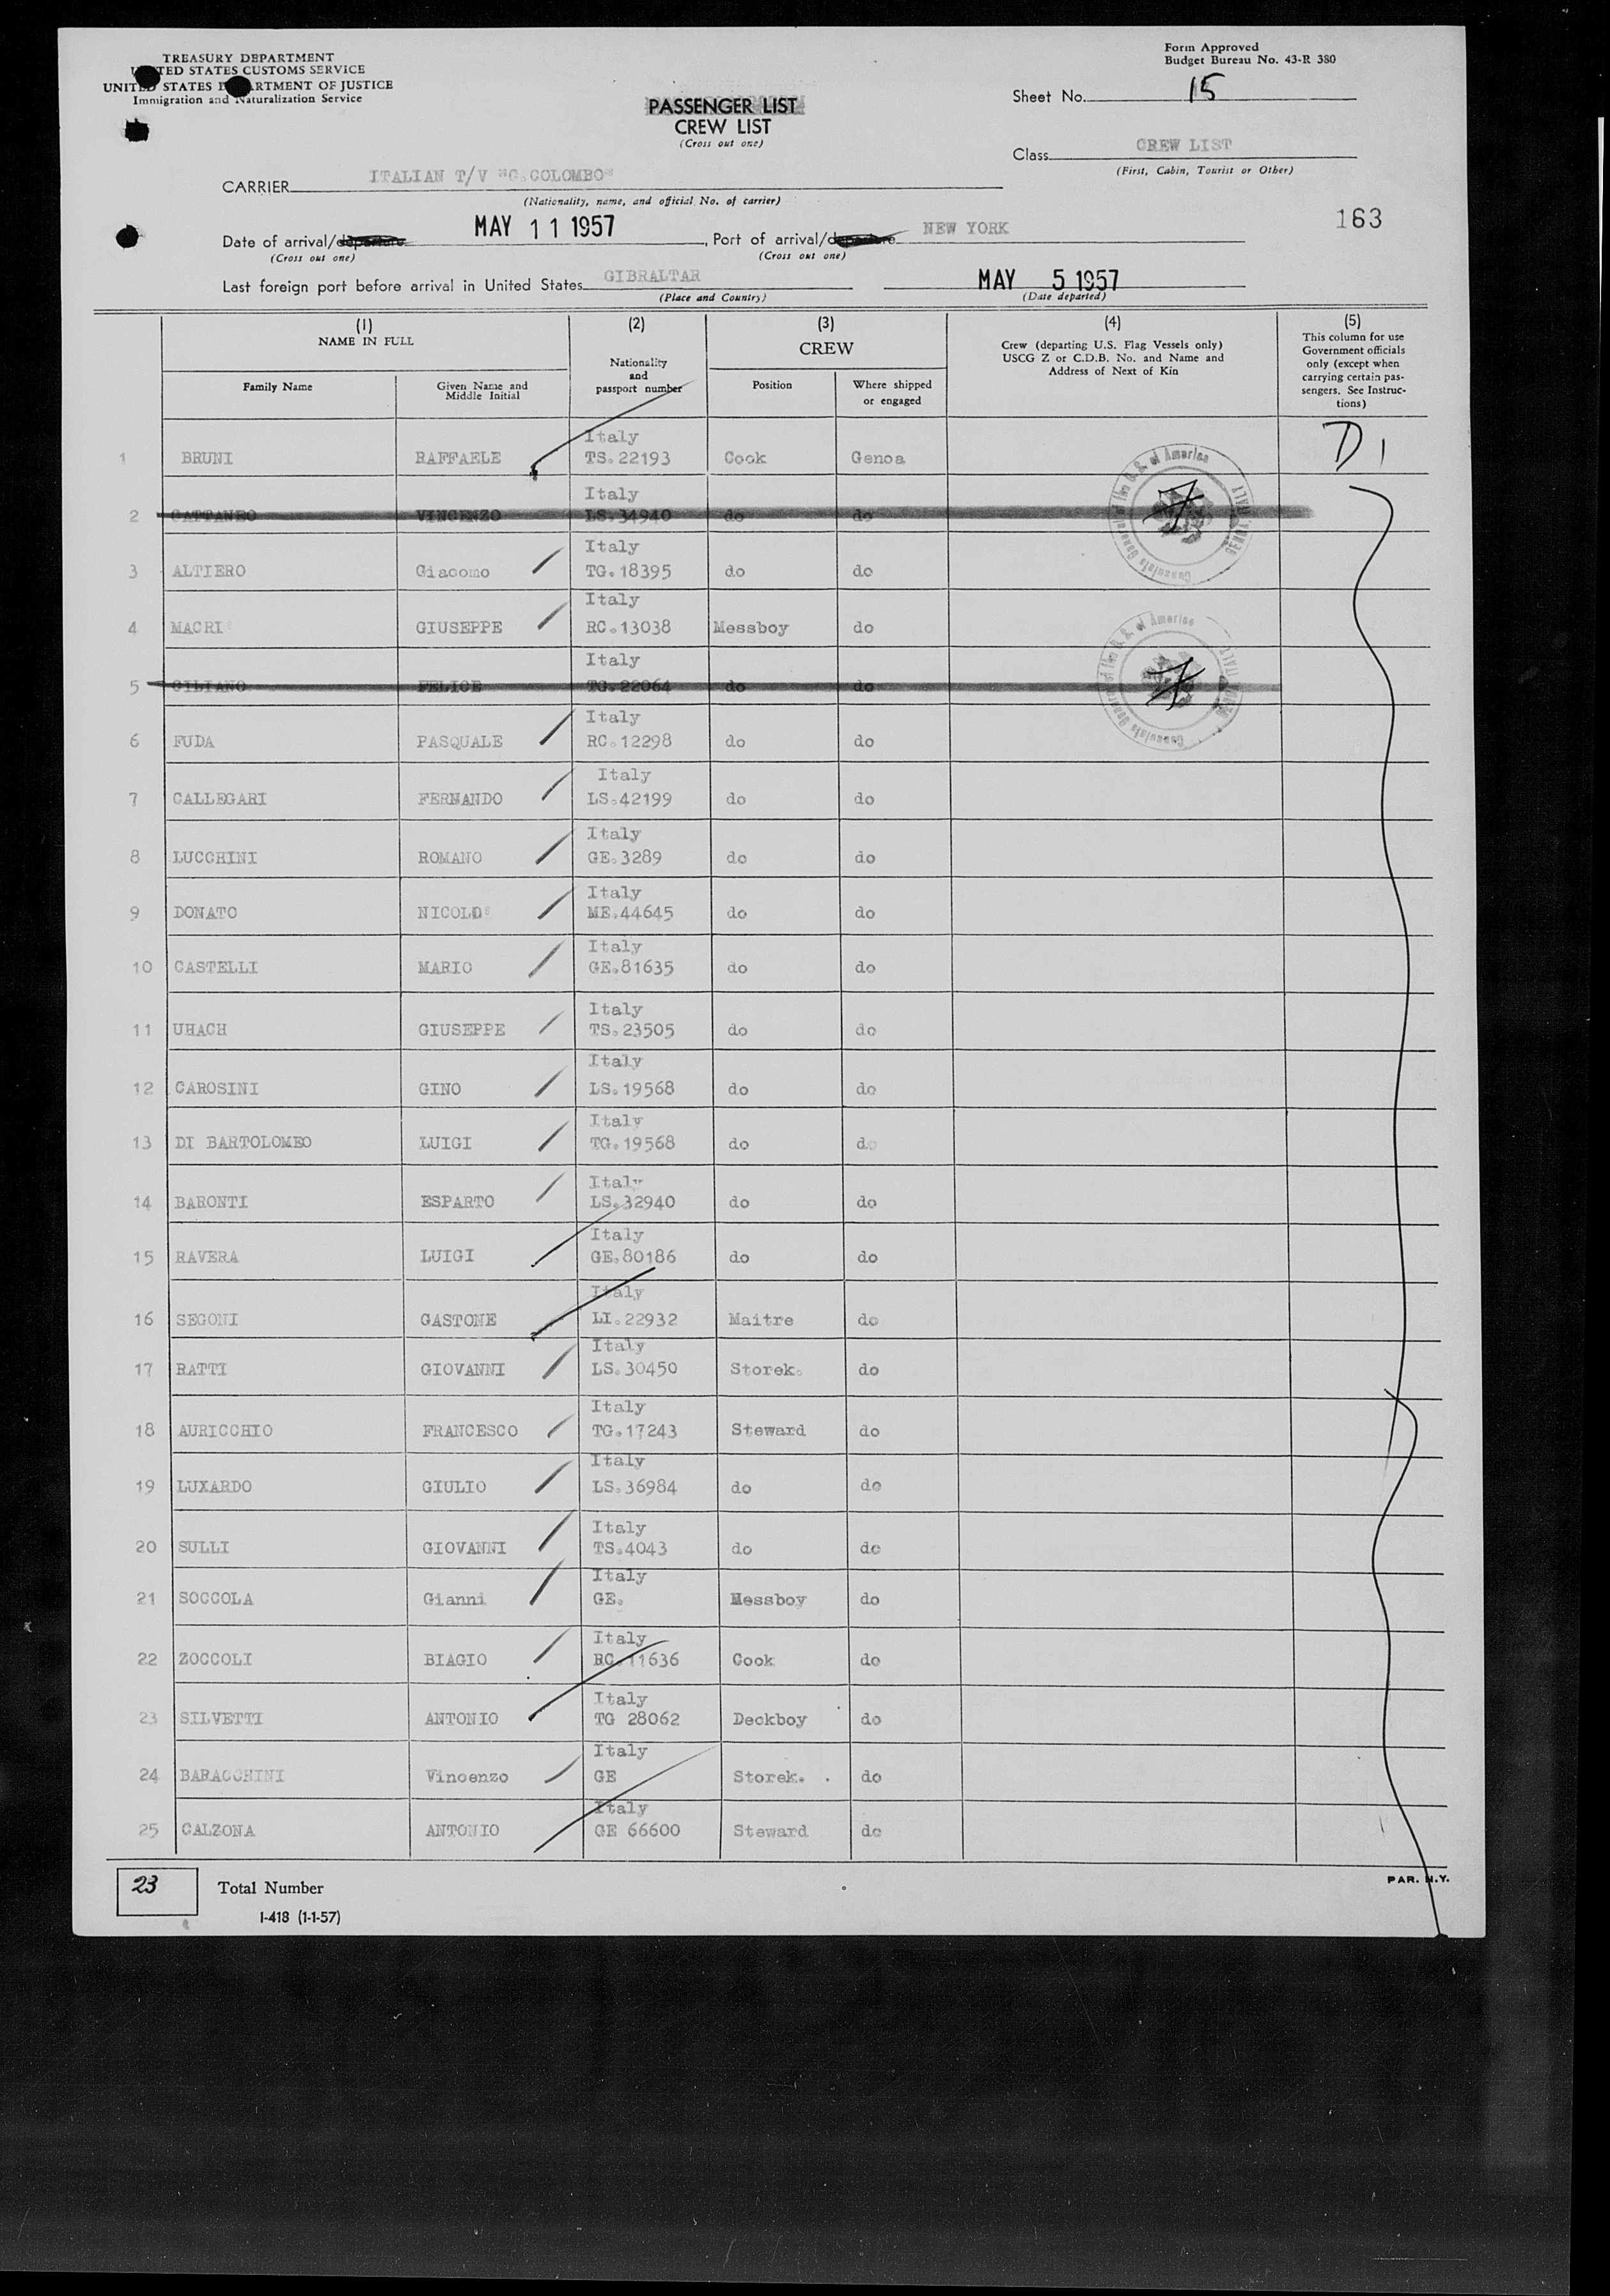 TREASURY DEPARTMENT
UNITED STATES CUSTOMS SERVICE
UNITED STATES DEPARTMENT OF JUSTICE
Immigration and Naturalization Service
Form Approved
Budget Bureau No. 43-R 380
PASSENGER LIST
CREW LIST
(Cross out one)
Sheet No. 15
Class CREW LIST
(First, Cabin, Tourist or Other)
CARRIER ITALIAN T/V "C.COLOMBO"
(Nationality, name, and official No. of carrier)
163
Date of arrival/departure MAY 11 1957, Port of arrival/departure NEW YORK
(Cross out one) (Cross out one)
Last foreign port before arrival in United States GIBRALTAR MAY 5 1957
(Place and Country) (Date departed)
(1) NAME IN FULL
Family Name
Given Name and Middle Initial
(2)
Nationality and passport number
(3)
CREW
Position
Where shipped or engaged
(4)
Crew (departing U.S. Flag Vessels only)
USCG Z or C.D.B. No. and Name and
Address of Next of Kin
(5)
This column for use
Government officials
only (except when
carrying certain pas-
sengers. See Instruc-
tions)
D1
Italy
1 BRUNI RAFFAELE TS.22193 Cook Genoa
Italy
2 CATTANEO VINCENZO LS.34940 do do
Italy
3 ALTIERO Giacomo TG.18395 do do
Italy
4 MACRI' GIUSEPPE RC.13038 Messboy do
Italy
5 CILIANO FELICE TG.22064 do do
Italy
6 FUDA PASQUALE RC.12298 do do
Italy
7 CALLEGARI FERNANDO LS.42199 do do
Italy
8 LUCCHINI ROMANO GE.3289 do do
Italy
9 DONATO NICOLO' ME.44645 do do
Italy
10 CASTELLI MARIO GE.81635 do do
Italy
11 UHACH GIUSEPPE TS.23505 do do
Italy
12 CAROSINI GINO LS.19568 do do
Italy
13 DI BARTOLOMEO LUIGI TG.19568 do do
Italy
14 BARONTI ESPARTO LS.32940 do do
Italy
15 RAVERA LUIGI GE.80186 do do
Italy
16 SEGONI GASTONE LI.22932 Maitre do
Italy
17 RATTI GIOVANNI LS.30450 Storek. do
Italy
18 AURICCHIO FRANCESCO TG.17243 Steward do
Italy
19 LUXARDO GIULIO LS.36984 do do
Italy
20 SULLI GIOVANNI TS.4043 do do
Italy
21 SOCCOLA Gianni GE. Messboy do
Italy
22 ZOCCOLI BIAGIO RC.11636 Cook do
Italy
23 SILVETTI ANTONIO TG 28062 Deckboy do
Italy
24 BARACCHINI Vincenzo GE Storek. do
Italy
25 CALZONA ANTONIO GE 66600 Steward do
23 Total Number
I-418 (1-1-57)
PAR. N.Y.